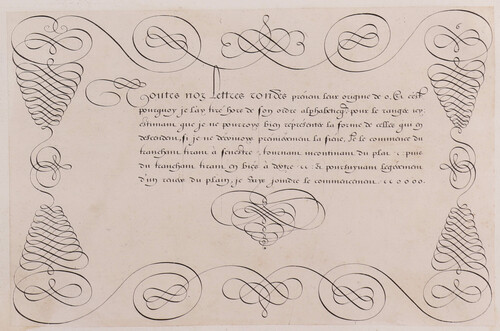 Toutes noz lettres rondes prenan leur origine de o. Et c'est
pourquoy je l'ay tiré hors de son ordre alphabetiq; pour le ranger icy
estimant que je ne pourroys bien representer la forme de celles qui en
descendent, si je ne descrivoys premierement la siene, Or le commence du
tranchant tirant à senestre, tournant incontinent du plat . puis
du tranchant tirant en bies à dextre . & poursuyvant legerement
d'un revers du plain, je vays joindre le commencement . o o o o.